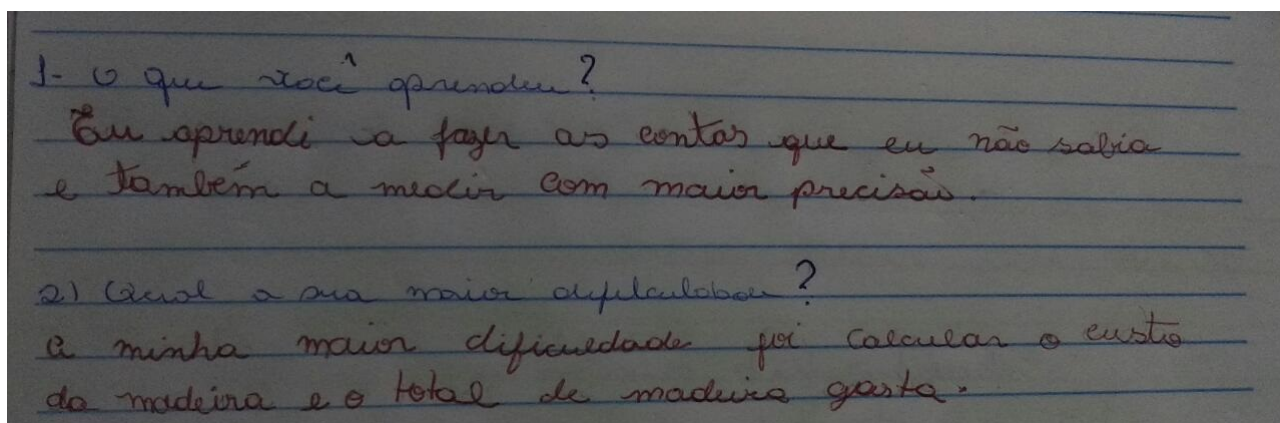 1- O que você aprendeu?
Eu aprendi a fazer as contas que eu não sabia
e também a medir com maior precisão.
2) Qual a sua maior dificuldade?
A minha maior dificuldade foi calcular o custo
da madeira e o total de madeira gasta.